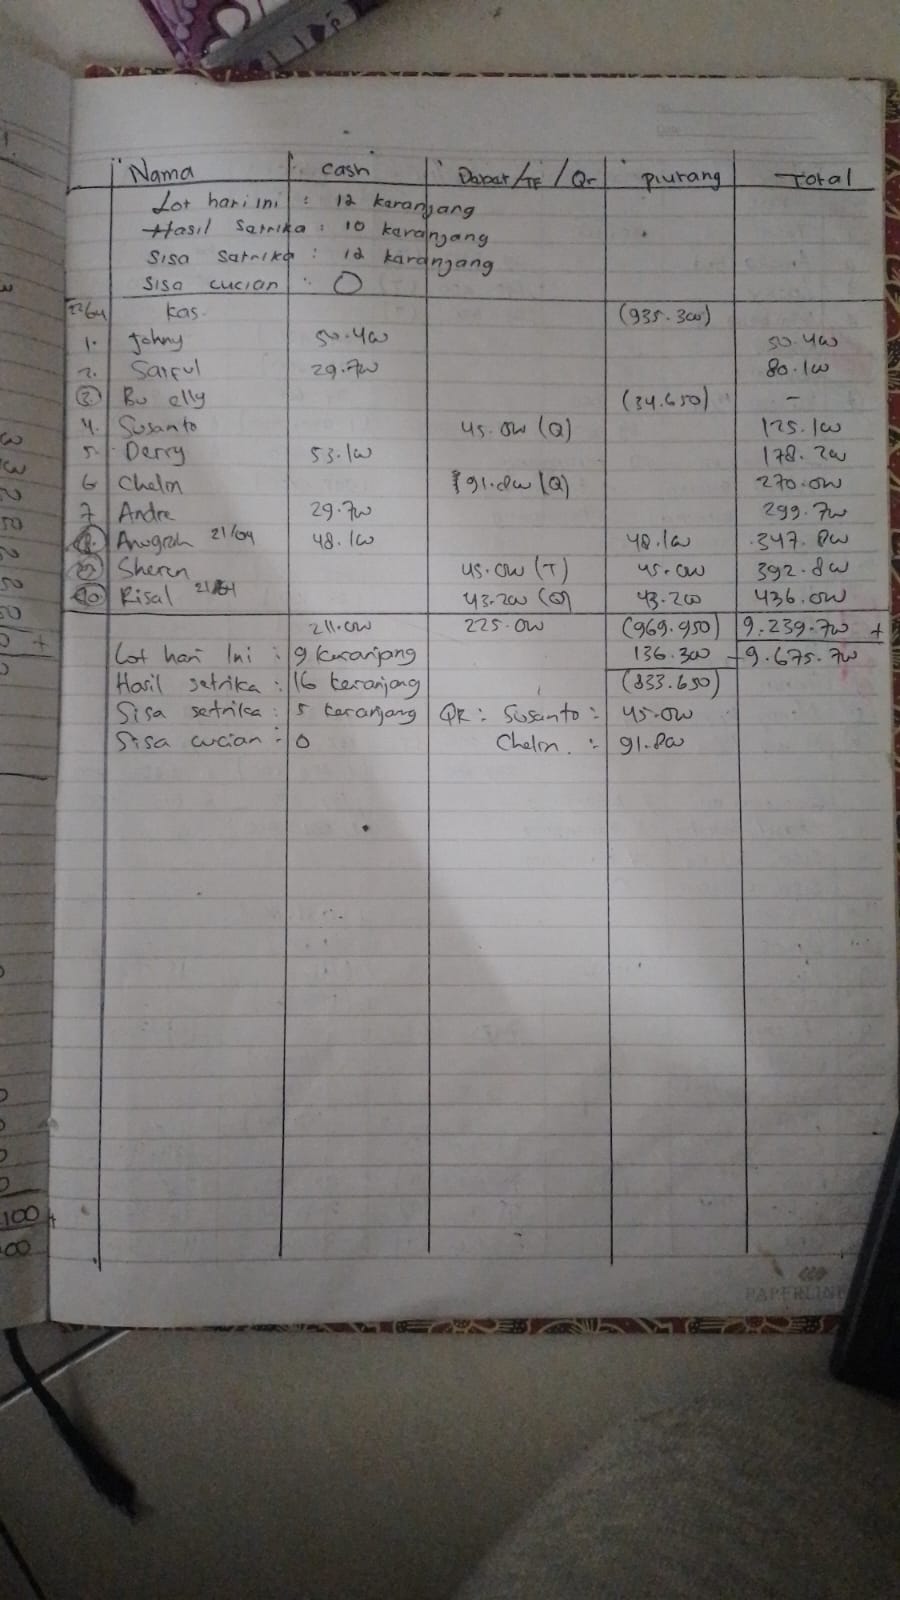 Nama Cash Debet/TF/Qr piutang Total
Lot hari ini : 12 keranjang
Hasil Satrika : 10 keranjang
Sisa Satrika : 12 karanjang
Sisa cucian : 0
22/04 kas (935.300)
1. Johny 50.400 50.400
2. Saiful 29.700 80.100
3 Bu elly (34.650) -
4. Susanto 45.000 (Q) 125.100
5. Derry 53.100 178.200
6 Chelm 91.800 (Q) 270.000
7 Andre 29.700 299.700
8. Anugrah 21/04 48.100 48.100 347.800
9 Sheren 45.000 (T) 45.000 392.800
10 Risal 21/04 43.200 (Q) 43.200 436.000
211.000 225.000 (969.950) 9.239.700 +
Lot hari Ini : 9 keranjang 136.300 - 9.675.700
Hasil setrika : 16 keranjang (833.650)
Sisa setrika : 5 keranjang QR : Susanto : 45.000
Sisa cucian : 0 Chelm : 91.800
100 +
00
PAPERLINE